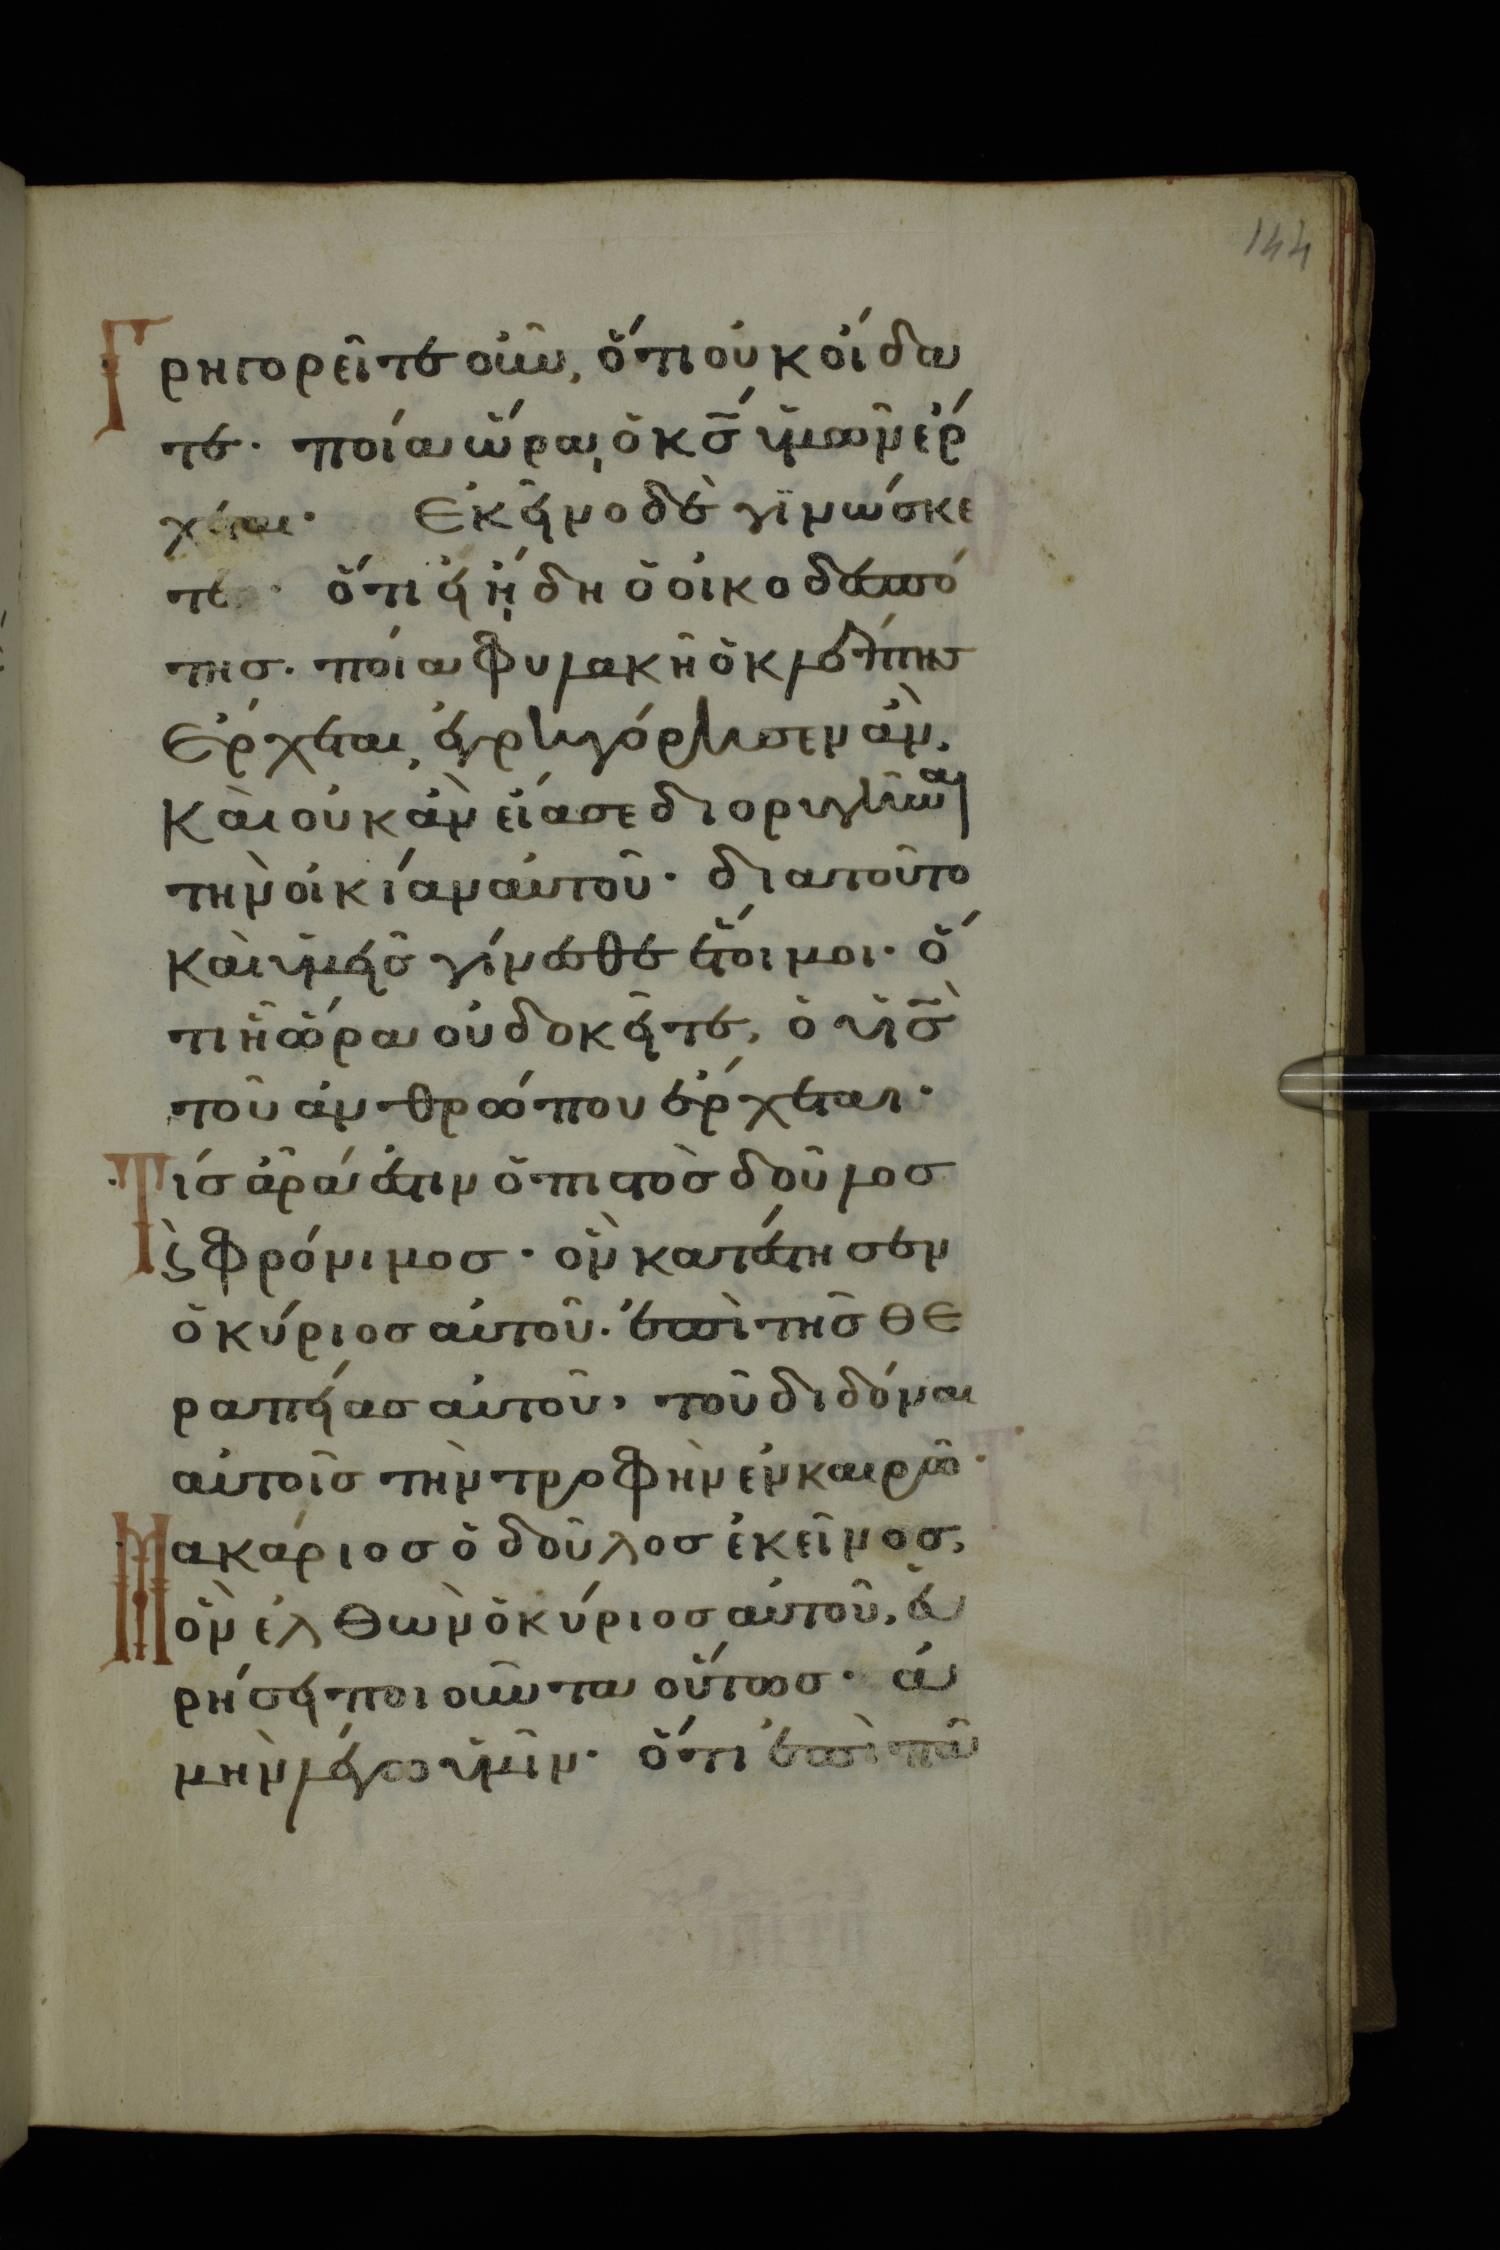 144
Γρηγορεῖτε οὖν, ὅτι οὐκ οἴδα
τε· ποία ὥρα, ὁ κ̅ς̅ ὑμῶν ἔρ
χεται· Ἐκεῖνο δὲ γϊνώσκε
τε· ὅτι εἰ ἤδη ὁ οἰκοδεσπό
της. ποία φυλακῆ ὁ κλέπτης
ἔρχεται, ἐγρηγόρησεν ἂν,
Καὶ οὐκ ἂν εἴασε διορυγῆναι
τὴν οἰκίαν αὐτοῦ· διατοῦτο
καὶ ὑμεῖς γίνεσθε ἕτοιμοι· ὅ
τι ἧ ὥρα οὐ δοκεῖτε, ὁ υ̅ς̅
τοῦ ἀνθρώπου ἔρχεται·
Τίς ἆρα ἐστιν ὁ πιστὸς δοῦλος
ϗ φρόνιμος· ὃν κατέστησεν
ὁ κύριος αὐτοῦ. ἐπὶ τῆς θε
ραπείας αὐτοῦ, τοῦ διδόναι
αὐτοῖς τὴν τροφὴν ἐν καιρῶ·
Μακάριος ὁ δοῦλος ἐκεῖνος,
ὃν ἐλθὼν ὁ κύριος αὐτοῦ, εὑ
ρήσει ποιοῦντα οὕτως· ἀ
μὴν λέγω ὑμῖν· ὅτι ἐπὶ πᾶ